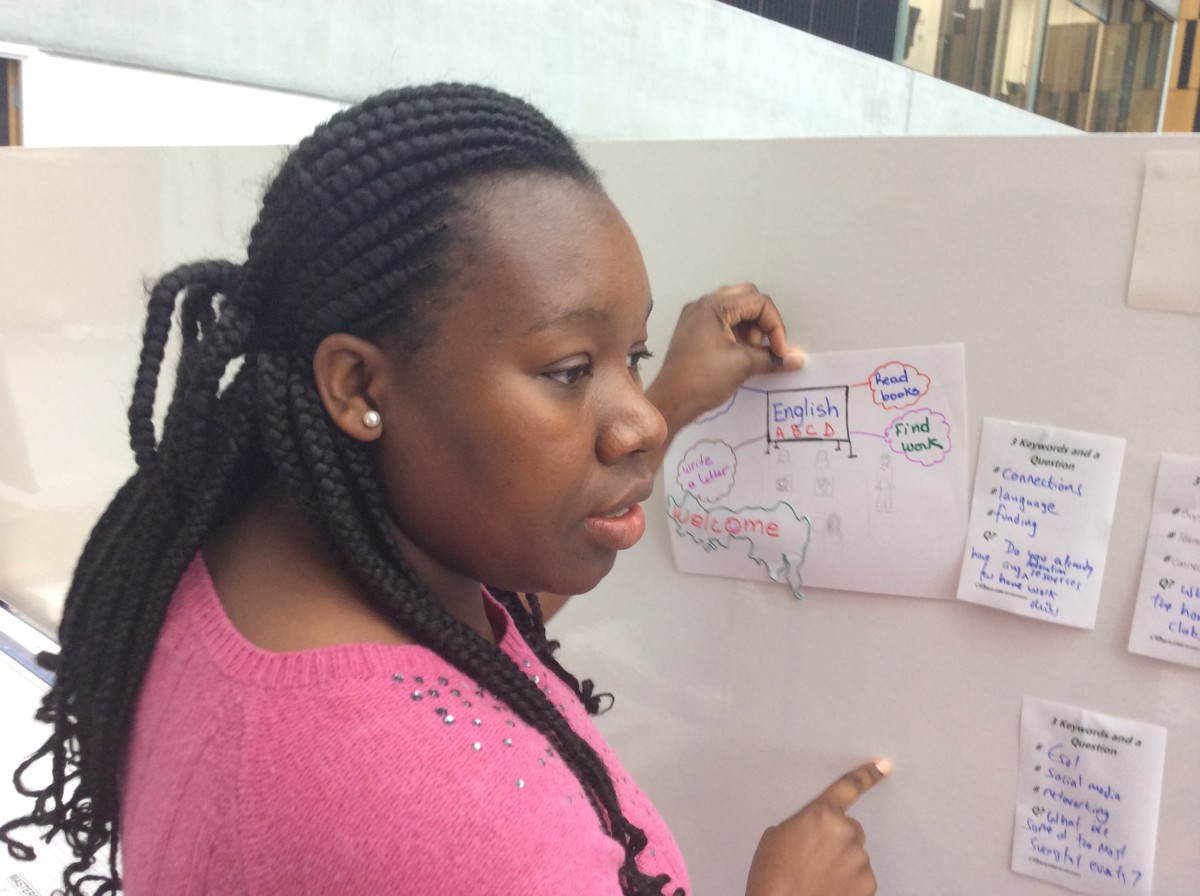 English
A B C D
Read
books
Find
work
Write
a letter
Welcome
3 Keywords and a
Question
# Connections
# language
# funding
Q? Do you already
have any education
resources
for home work
clubs
3
Q? Wh
the ho
club
3 Keywords and a
Question
# Esol
# social media
# networking
Q? What are
some of the most
successful events?
MASTER